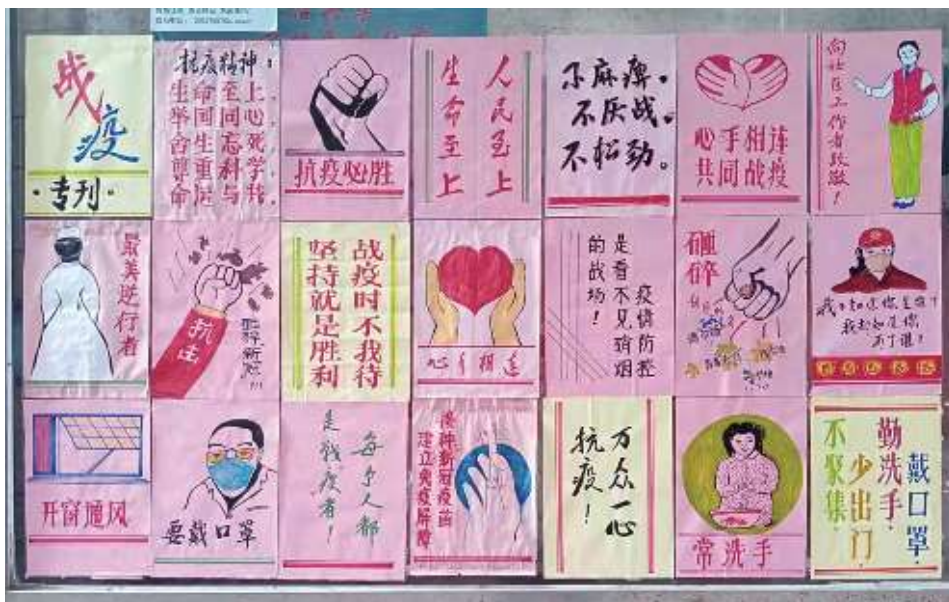 战
疫
·专刊·
抗疫精神:
生命至上,
举国同心,
舍生忘死,
尊重科学,
命运与共.
抗疫必胜
人民至上
生命至上
不麻痹。
不厌战。
不松劲。
心手相连
共同战疫
向社区工作者致敬!
最美逆行者
抗击
战疫时不我待
坚持就是胜利
心手相连
疫情防控
是看不见硝烟
的战场!
砸碎
我不知道你是谁?
我却知道你
为了谁!
开窗通风
要戴口罩
每个人都
是战疫者!
接种新冠疫苗
建立免疫屏障
万众一心
抗疫!
常洗手
戴口罩·
勤洗手·
少出门·
不聚集·